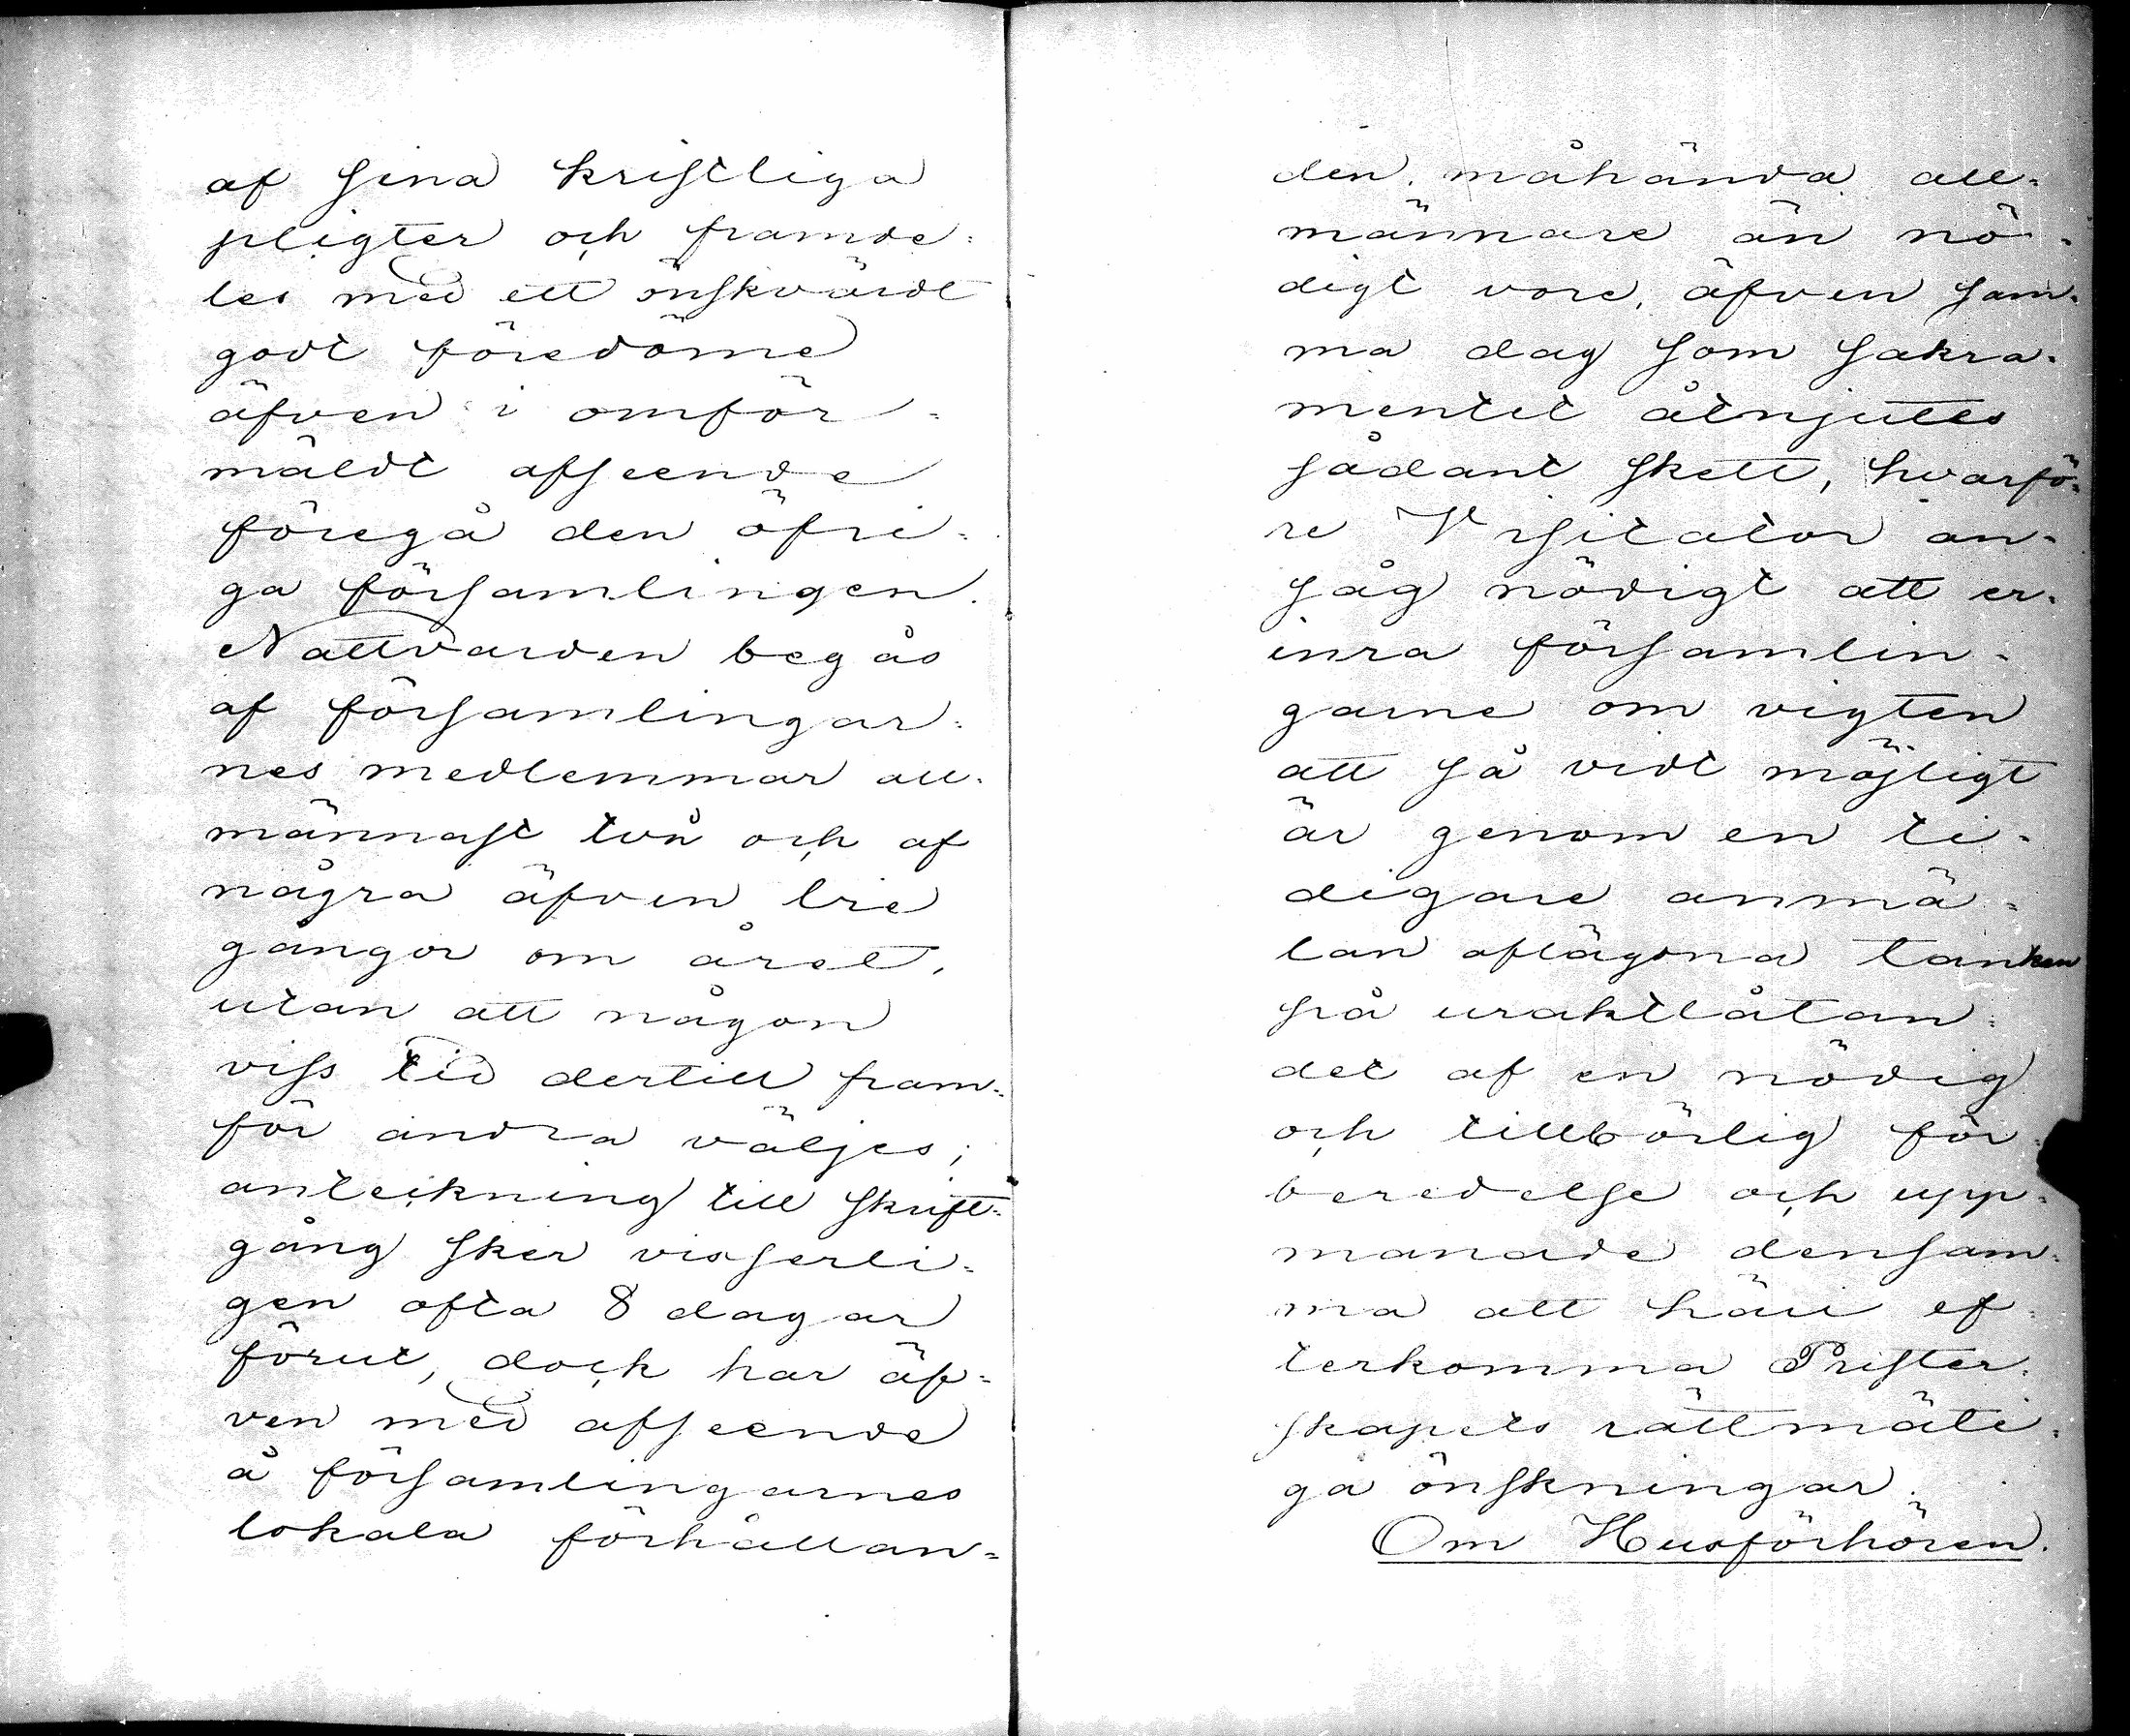 af sina kristliga
pligter och framde=
les med ett önskvärdt
godt föredöme
äfven i omför=
mäldt afseende
föregå den öfri=
ga församlingen.
Nattvarden begås
af församlingar=
nes medlemmar all=
männast två och af
några äfven tre
gångor om året,
utan att någon
viss tid dertill fram=
för andra väljes;
anteckning till skrift=
gång sker visserli=
gen ofta 8 dagar
förut, dock har äf=
ven med afseende
å församlingarnes
lokala förhållan=
den, måhända all=
männare än nö=
digt vore, äfven sam=
ma dag som sakra=
mentet åtnjutes
sådant skett, hvarfö=
re Visitator an=
såg nödigt att er=
inra församlin=
garne om vigten
att så vidt möjligt
är genom en ti=
digare anmä=
lan aflägsna tanken
på uraktlåtan=
det af en nödig
och tillbörlig för=
beredelse och upp=
manade densam=
ma att häri ef=
terkomma Prister=
skapets rättmäti=
ga önskningar.
Om Husförhören.